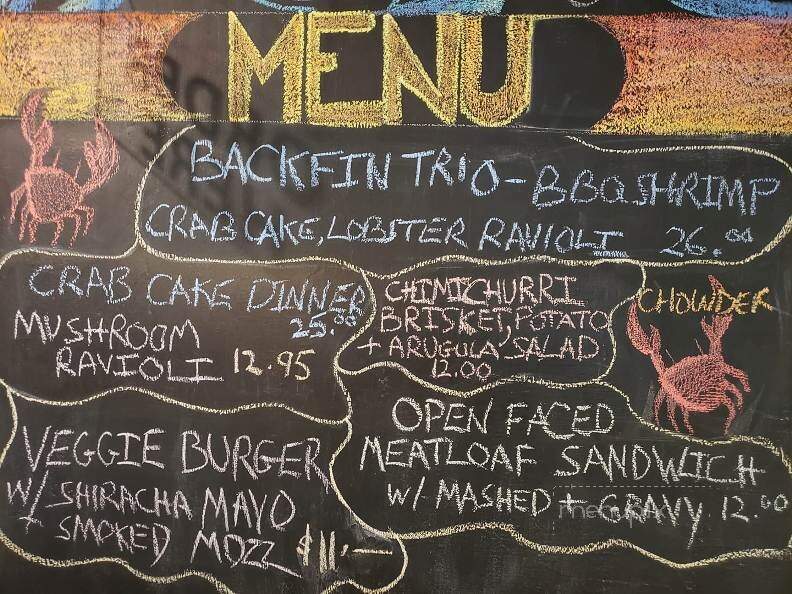 MENU
BACKFIN TRIO - BBQ SHRIMP
CRAB CAKE, LOBSTER RAVIOLI 26.00
CRAB CAKE DINNER
25.00
MUSHROOM
RAVIOLI 12.95
CHIMICHURRI
BRISKET, POTATO
+ ARUGULA SALAD
12.00
CHOWDER
VEGGIE BURGER
W/ SHIRACHA MAYO
+ SMOKED MOZZ $11.—
OPEN FACED
MEATLOAF SANDWICH
W/ MASHED + GRAVY 12.00